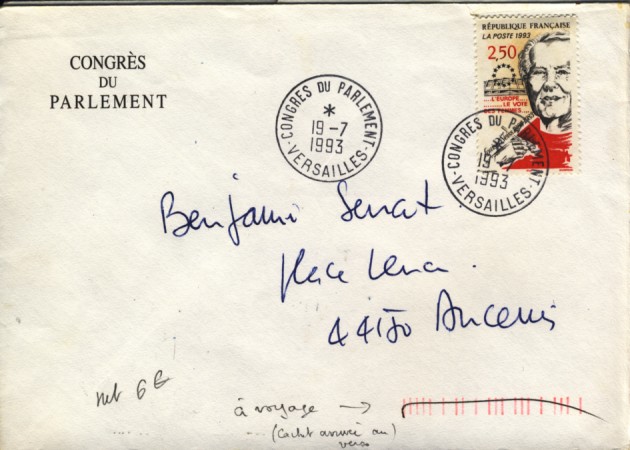 CONGRÈS
DU
PARLEMENT
CONGRÈS DU PARLEMENT
*
19-7
1993
-VERSAILLES-
RÉPUBLIQUE FRANÇAISE
LA POSTE 1993
2,50
L'EUROPE
LE VOTE
DES FEMMES
CONGRÈS DU PARLEMENT
19
1993
-VERSAILLES-
Benjamin
place
44150 Ancenis
net 6€
à voyagé →
(cachet arrivée au
verso)